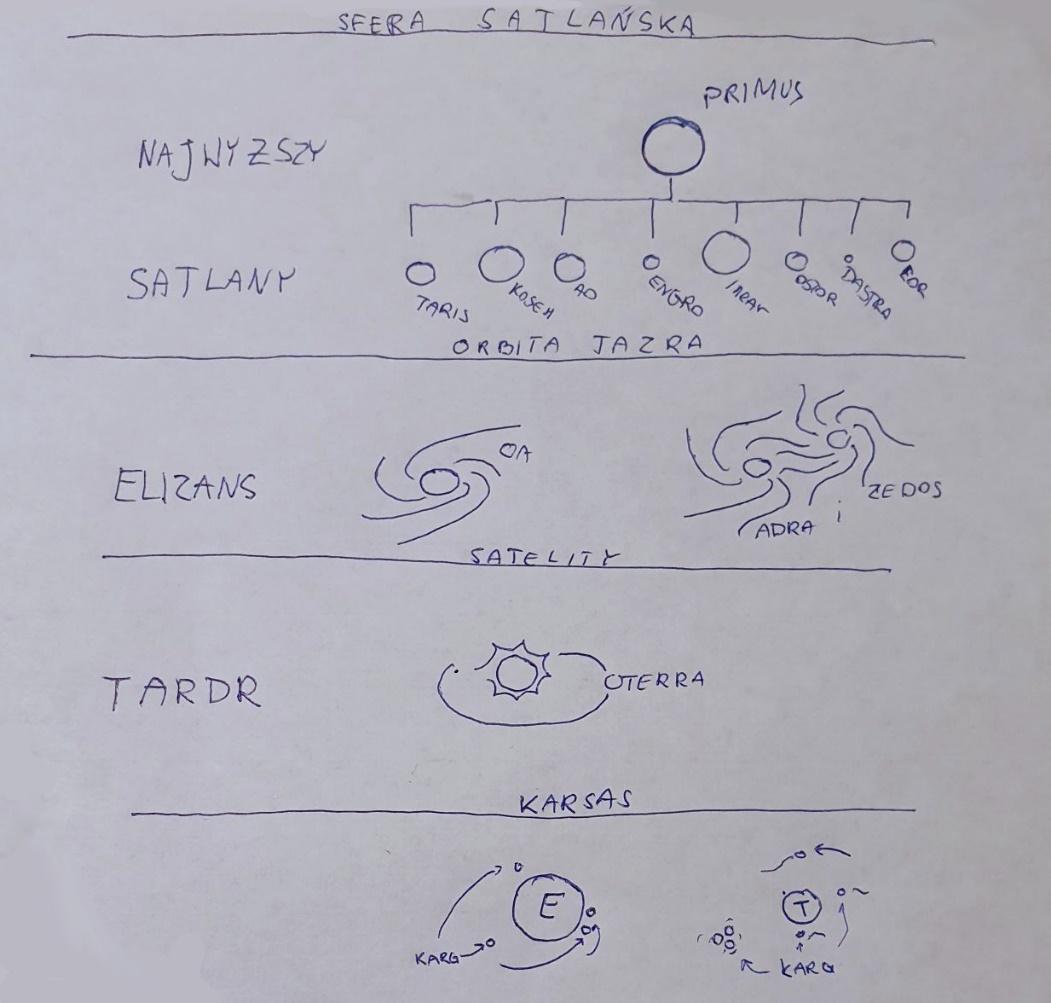 SFERA SATLAŃSKA
PRIMUS
NAJWYZSZY
SATLANY
TARIS
KOSEH
AO
ENGRO
OSTOR
DASTRA
EOR
ORBITA JAZRA
ELIZANS
OA
ADRA i ZEDOS
SATELITY
TARDR
TERRA
KARSAS
E
T
KARG
KARG